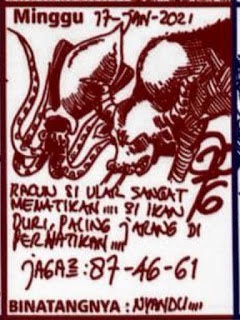 Minggu 17-JAN-2021
26
RACUN SI ULAR SANGAT
MEMATIKAN !!!! SI IKAN
DURI, PALING JARANG DI
PERHATIKAN !!!!
JAGA2 : 87-46-61
BINATANGNYA : NYANDU !!!!